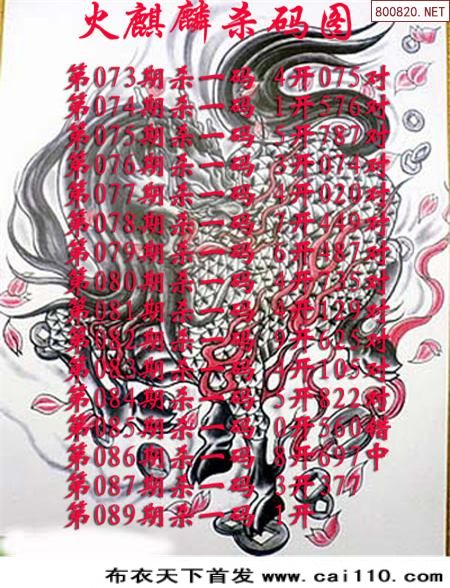 火麒麟杀码图
800820.NET
第073期杀一码 4开075对
第074期杀一码 1开576对
第075期杀一码 5开787对
第076期杀一码 3开074对
第077期杀一码 4开029对
第078期杀一码 7开449对
第079期杀一码 6开487对
第080期杀一码 4开735对
第081期杀一码 4开129对
第082期杀一码 9开625对
第083期杀一码 4开105对
第084期杀一码 5开822对
第085期杀一码 0开560错
第086期杀一码 8开697中
第087期杀一码 3开377
第089期杀一码 1开
布衣天下首发 www.cai110.com